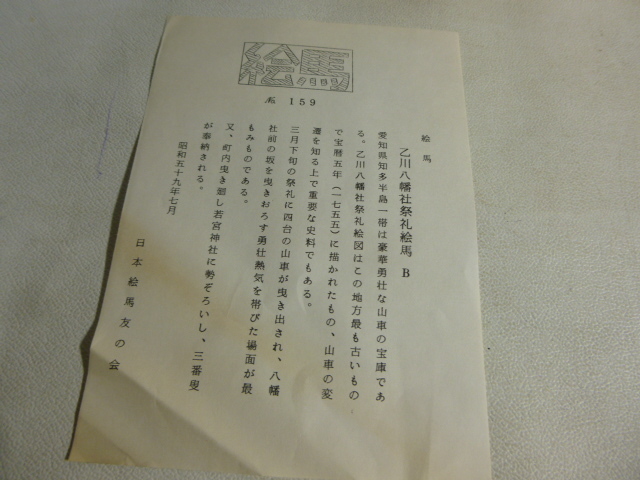 絵馬
№ 159
絵馬
乙川八幡社祭礼絵馬 B
愛知県知多半島一帯は豪華勇壮な山車の宝庫であ
る。乙川八幡社祭礼絵図はこの地方最も古いもの
で宝暦五年（一七五五）に描かれたもの、山車の変
遷を知る上で重要な史料でもある。
三月下旬の祭礼に四台の山車が曳き出され、八幡
社前の坂を曳きおろす勇壮熱気を帯びた場面が最
もみものである。
又、町内曳き廻し若宮神社に勢ぞろいし、三番叟
が奉納される。
昭和五十九年七月
日本絵馬友の会